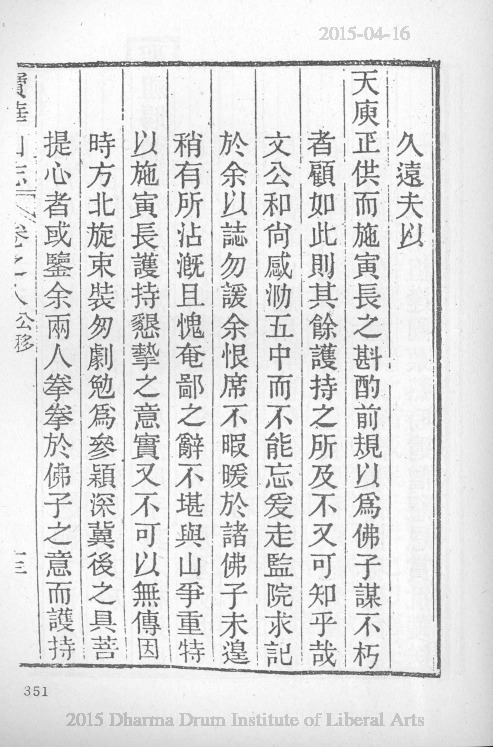 2015-04-16
久遠夫以
天庾正供而施寅長之斟酌前規以爲佛子謀不朽
者顧如此則其餘護持之所及不又可知乎哉
文公和尙感泐五中而不能忘爰走監院求記
於余以誌勿諼余恨席不暇暖於諸佛子未遑
稍有所沾漑且愧奄鄙之辭不堪與山爭重特
以施寅長護持懇摯之意實又不可以無傳因
時方北旋束裝匆劇勉爲參穎深冀後之具菩
提心者或鑒余兩人拳拳於佛子之意而護持
寶華山志 卷之八 公移
351
2015 Dharma Drum Institute of Liberal Arts